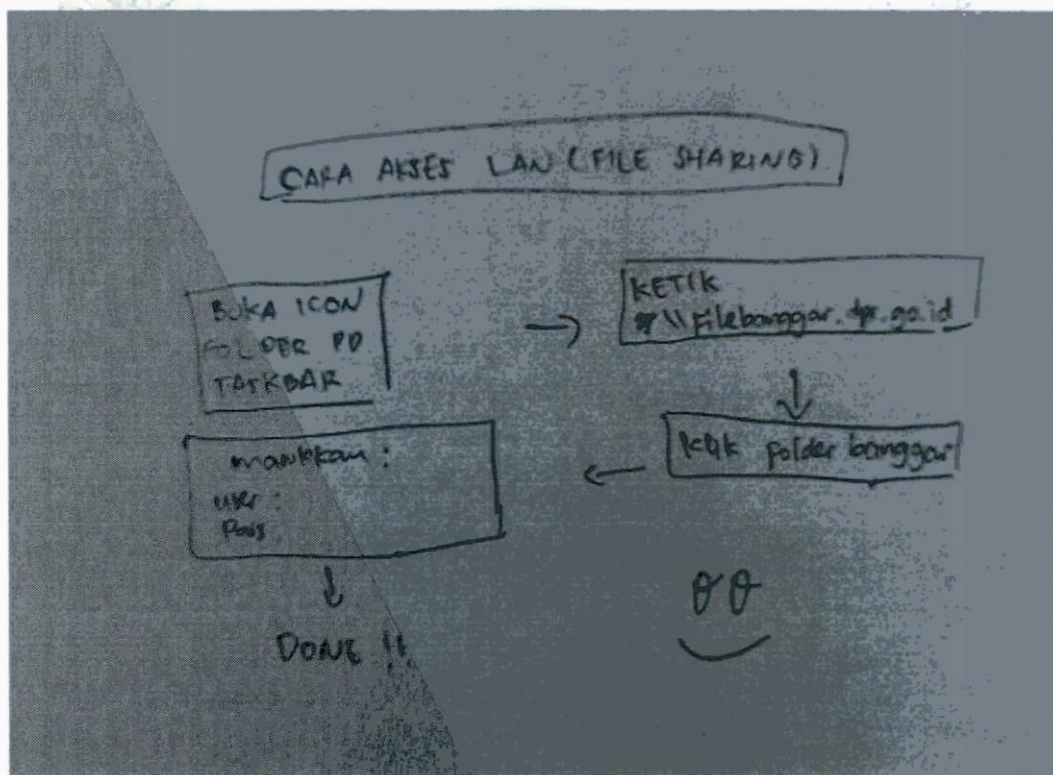 CARA AKSES LAN (FILE SHARING)
BUKA ICON
FOLDER PD
TASKBAR
KETIK
\\Filebanggar.dpr.go.id
Klik folder banggar
masukkan :
user :
Pass
DONE !!